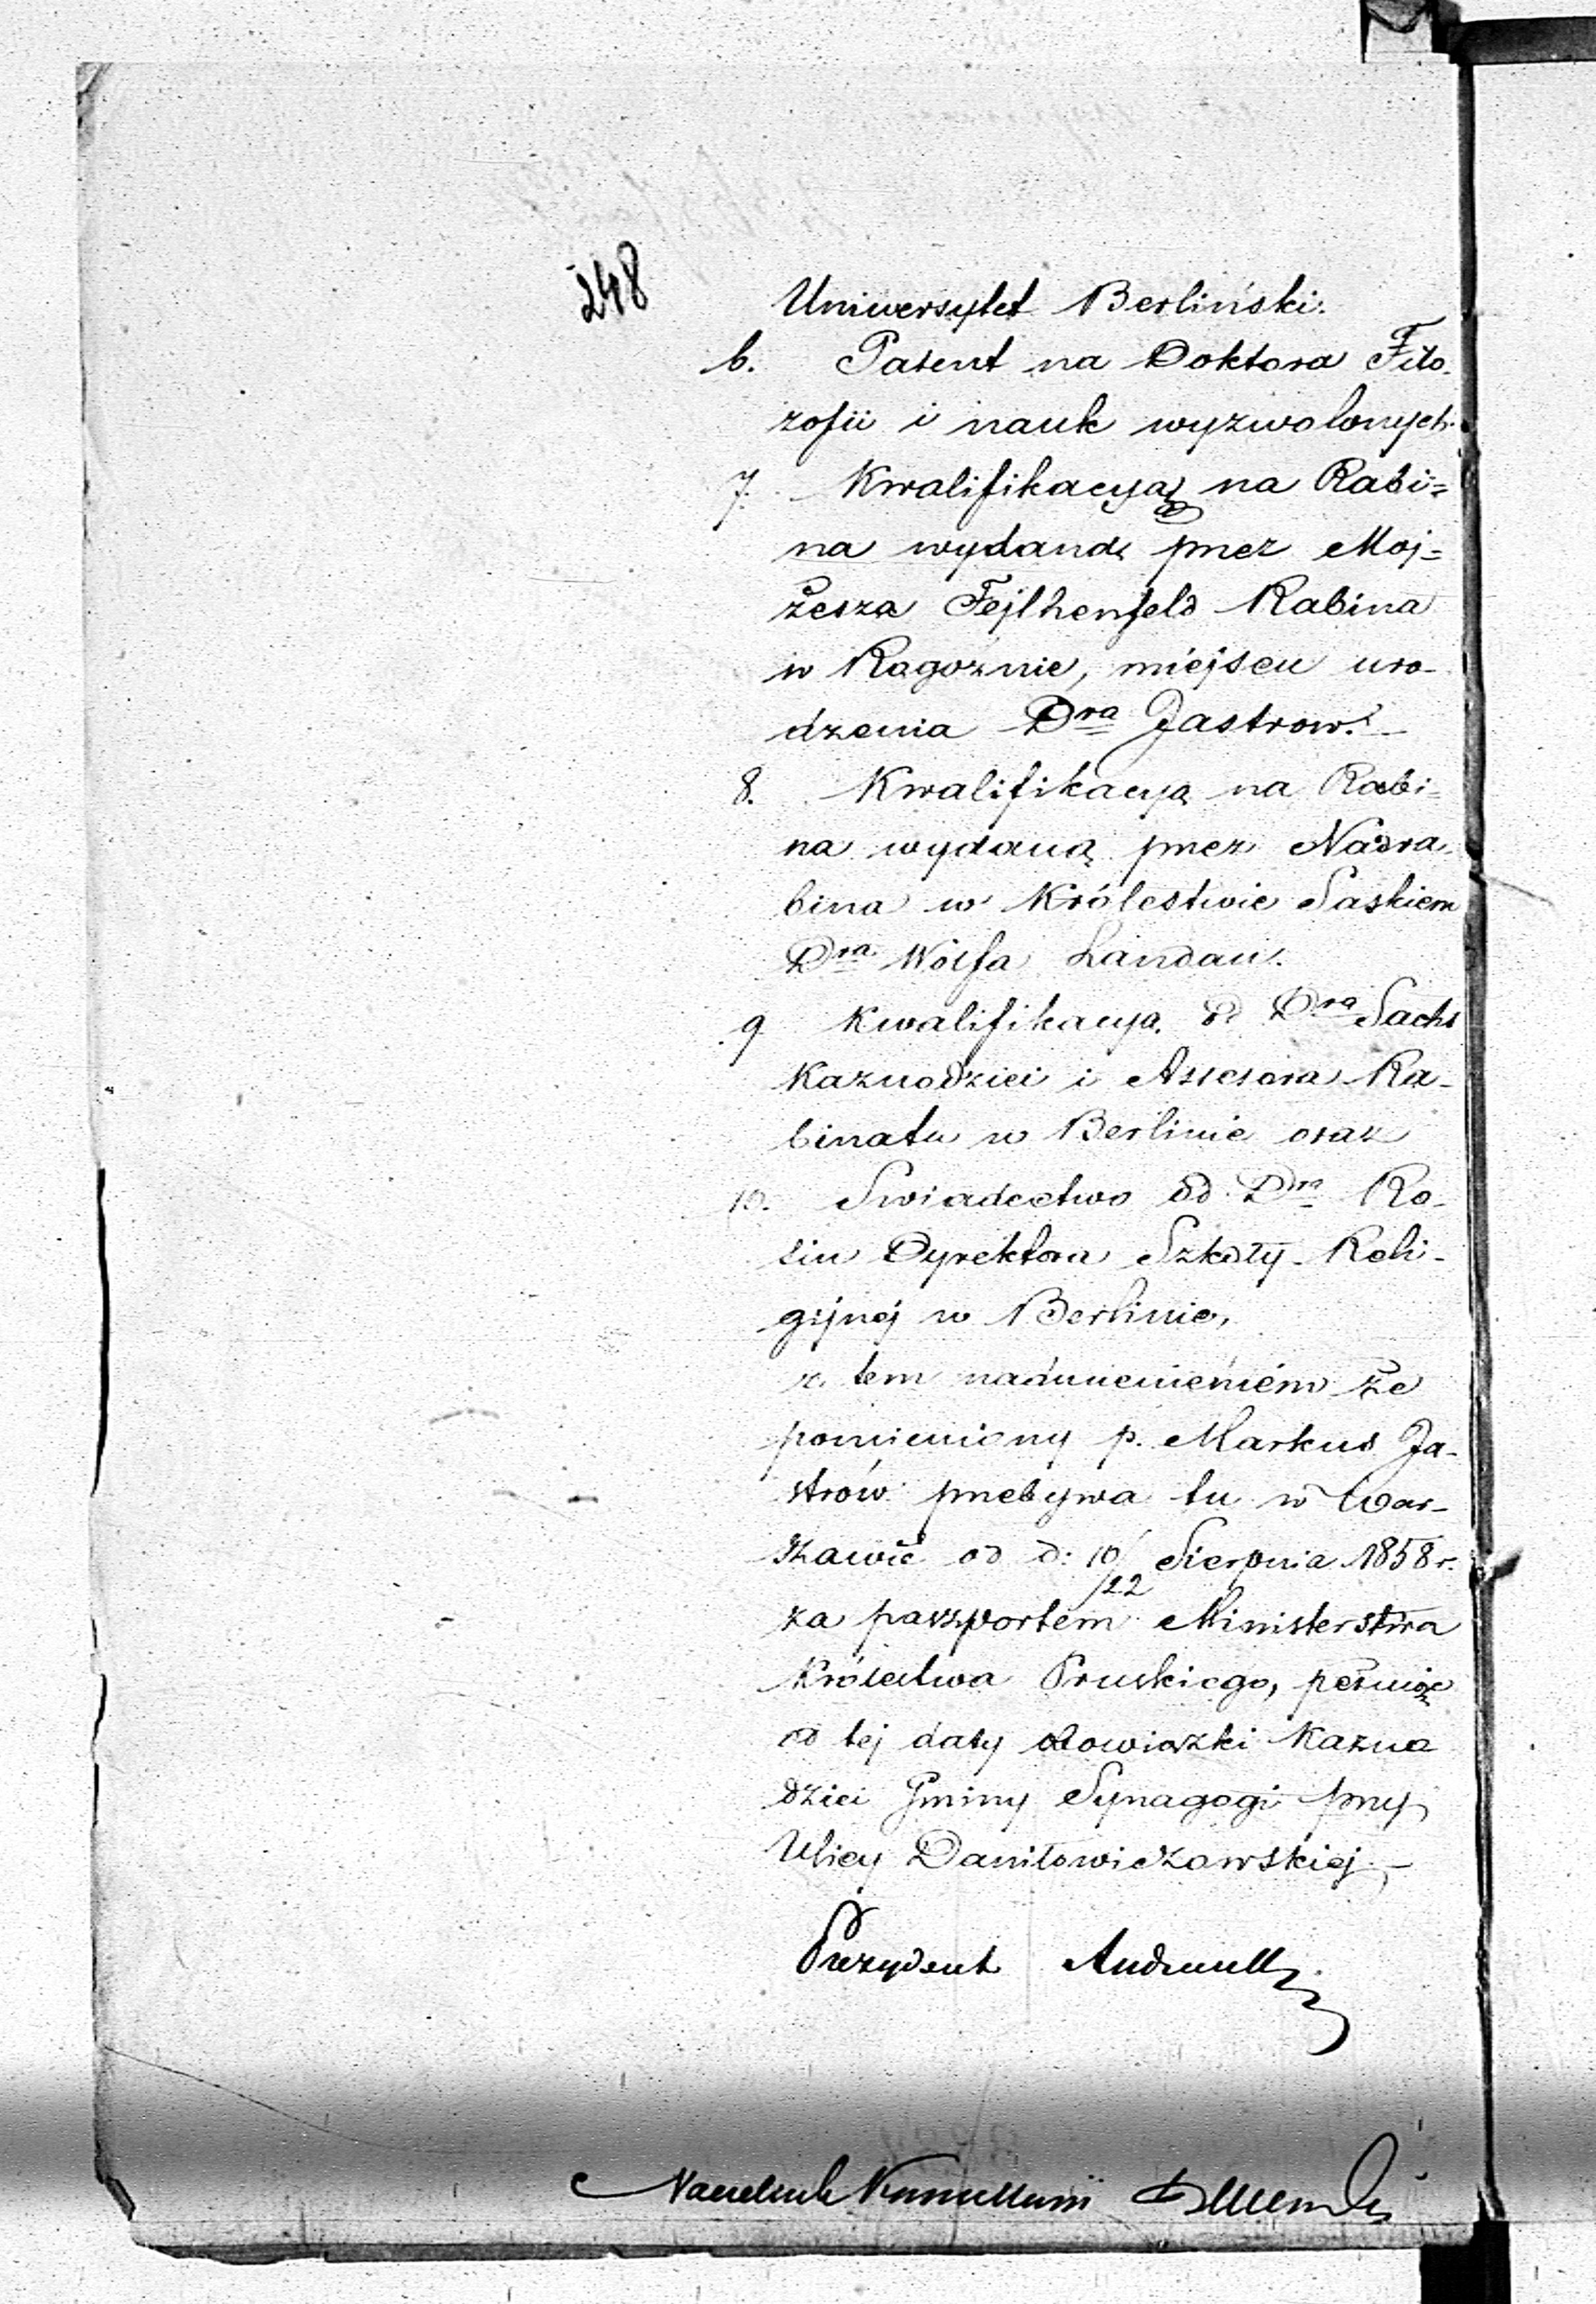 248
Uniwersytet Berliński.
6. Patent na Doktora Filo-
zofii i nauk wyzwolonych.
7. Kwalifikacyą na Rabi=
na wydaną przez Moj=
żesza Fejlhenfeld Rabina
w Ragoźnie, miejscu uro-
dzenia Dra Jastrow. -
8. Kwalifikacyą na Rabi=
na wydaną przez Nadra-
bina w Królestwie Saskiem
Dra Wolfa Landau.
9 Kwalifikacya od Dra Sachs
Kaznodziei i Assesora Ra-
binatu w Berlinie oraz
10. Swiadectwo od Dra Ro-
sin Dyrektora Szkoły Reli-
gijnej w Berlinie,
z tem nadmienieniem że
pomieniony p. Markus Ja-
strow przebywa tu w War-
szawie od d: 10/22 Sierpnia 1858 r.
za paszportem Ministerstwa
Królestwa Pruskiego, pełniąc
od tej daty obowiązki Kazno
dziei Gminy Synagogi przy
Ulicy Daniłowiczowskiej. -
Prezydent Andrault
Naczelnik Kancellarii